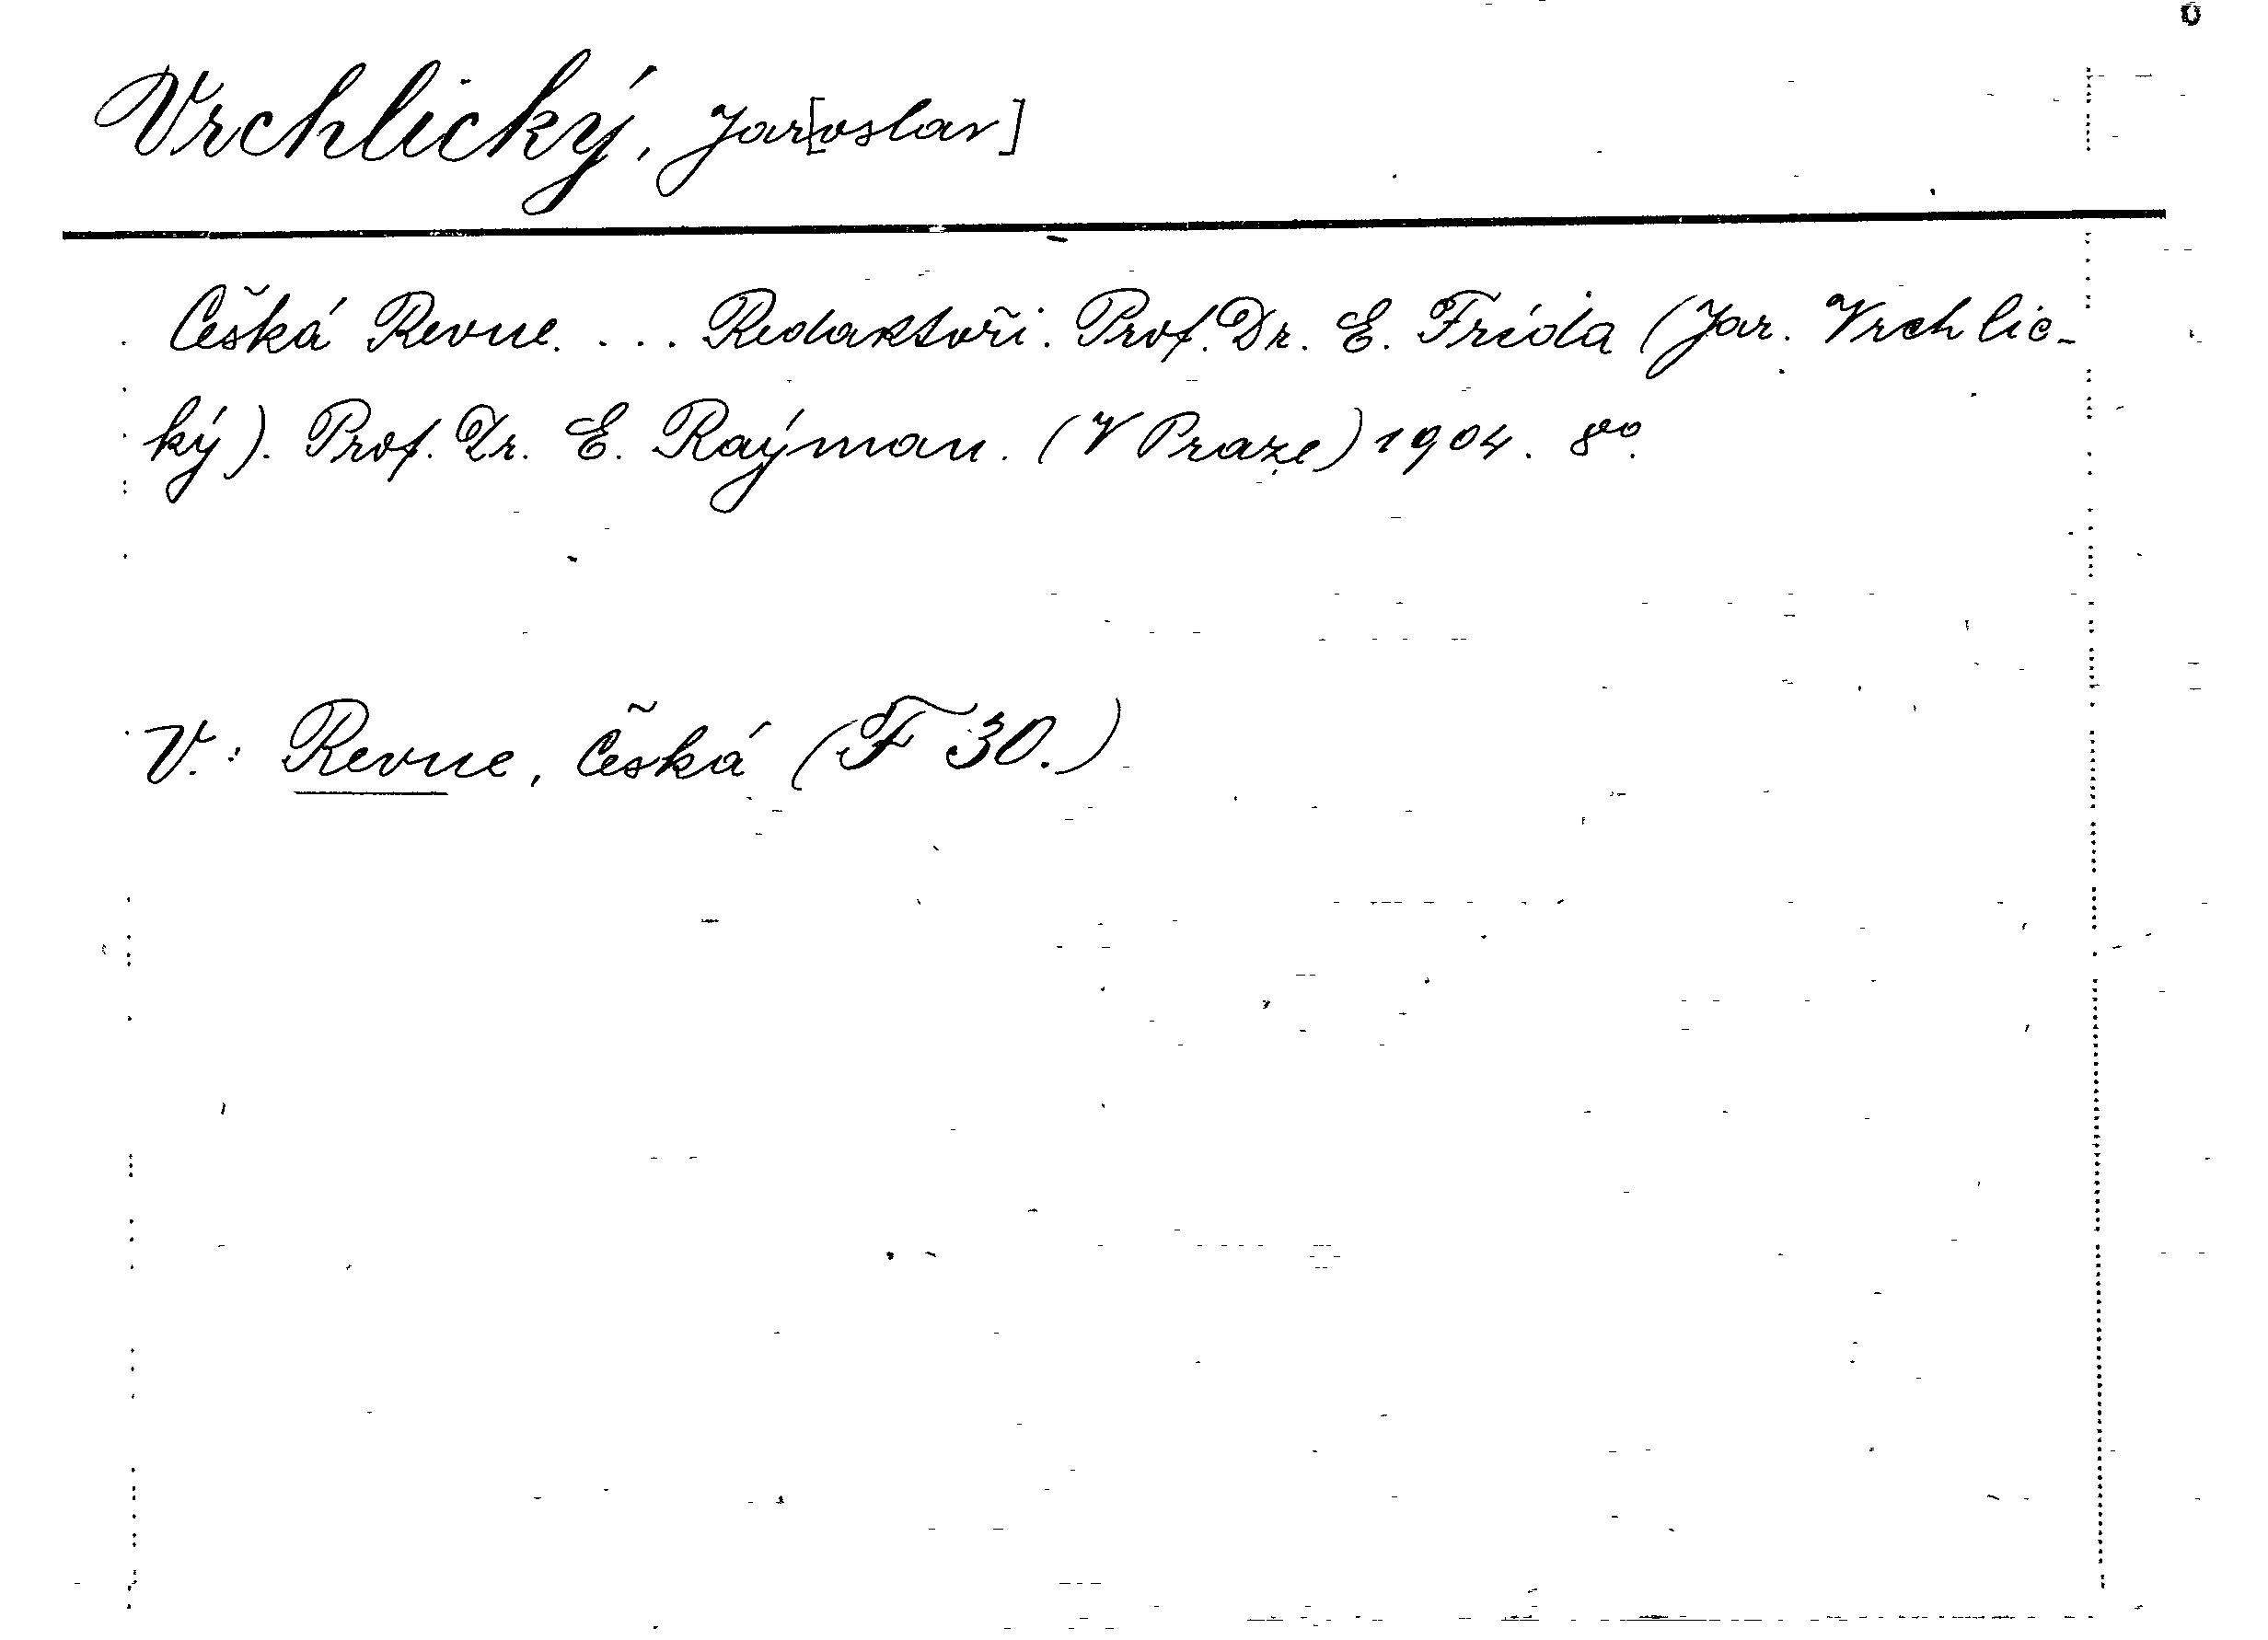 Vrchlický, Jar[oslav]
Česká Revue. ... Redaktoři. Prof. Dr. E. Frída (Jar. Vrchlic-
ký). Prof. Dr. E. Raýman. (V Praze) 1904. 8vo.
V.: Revue, Česká (F 30.)